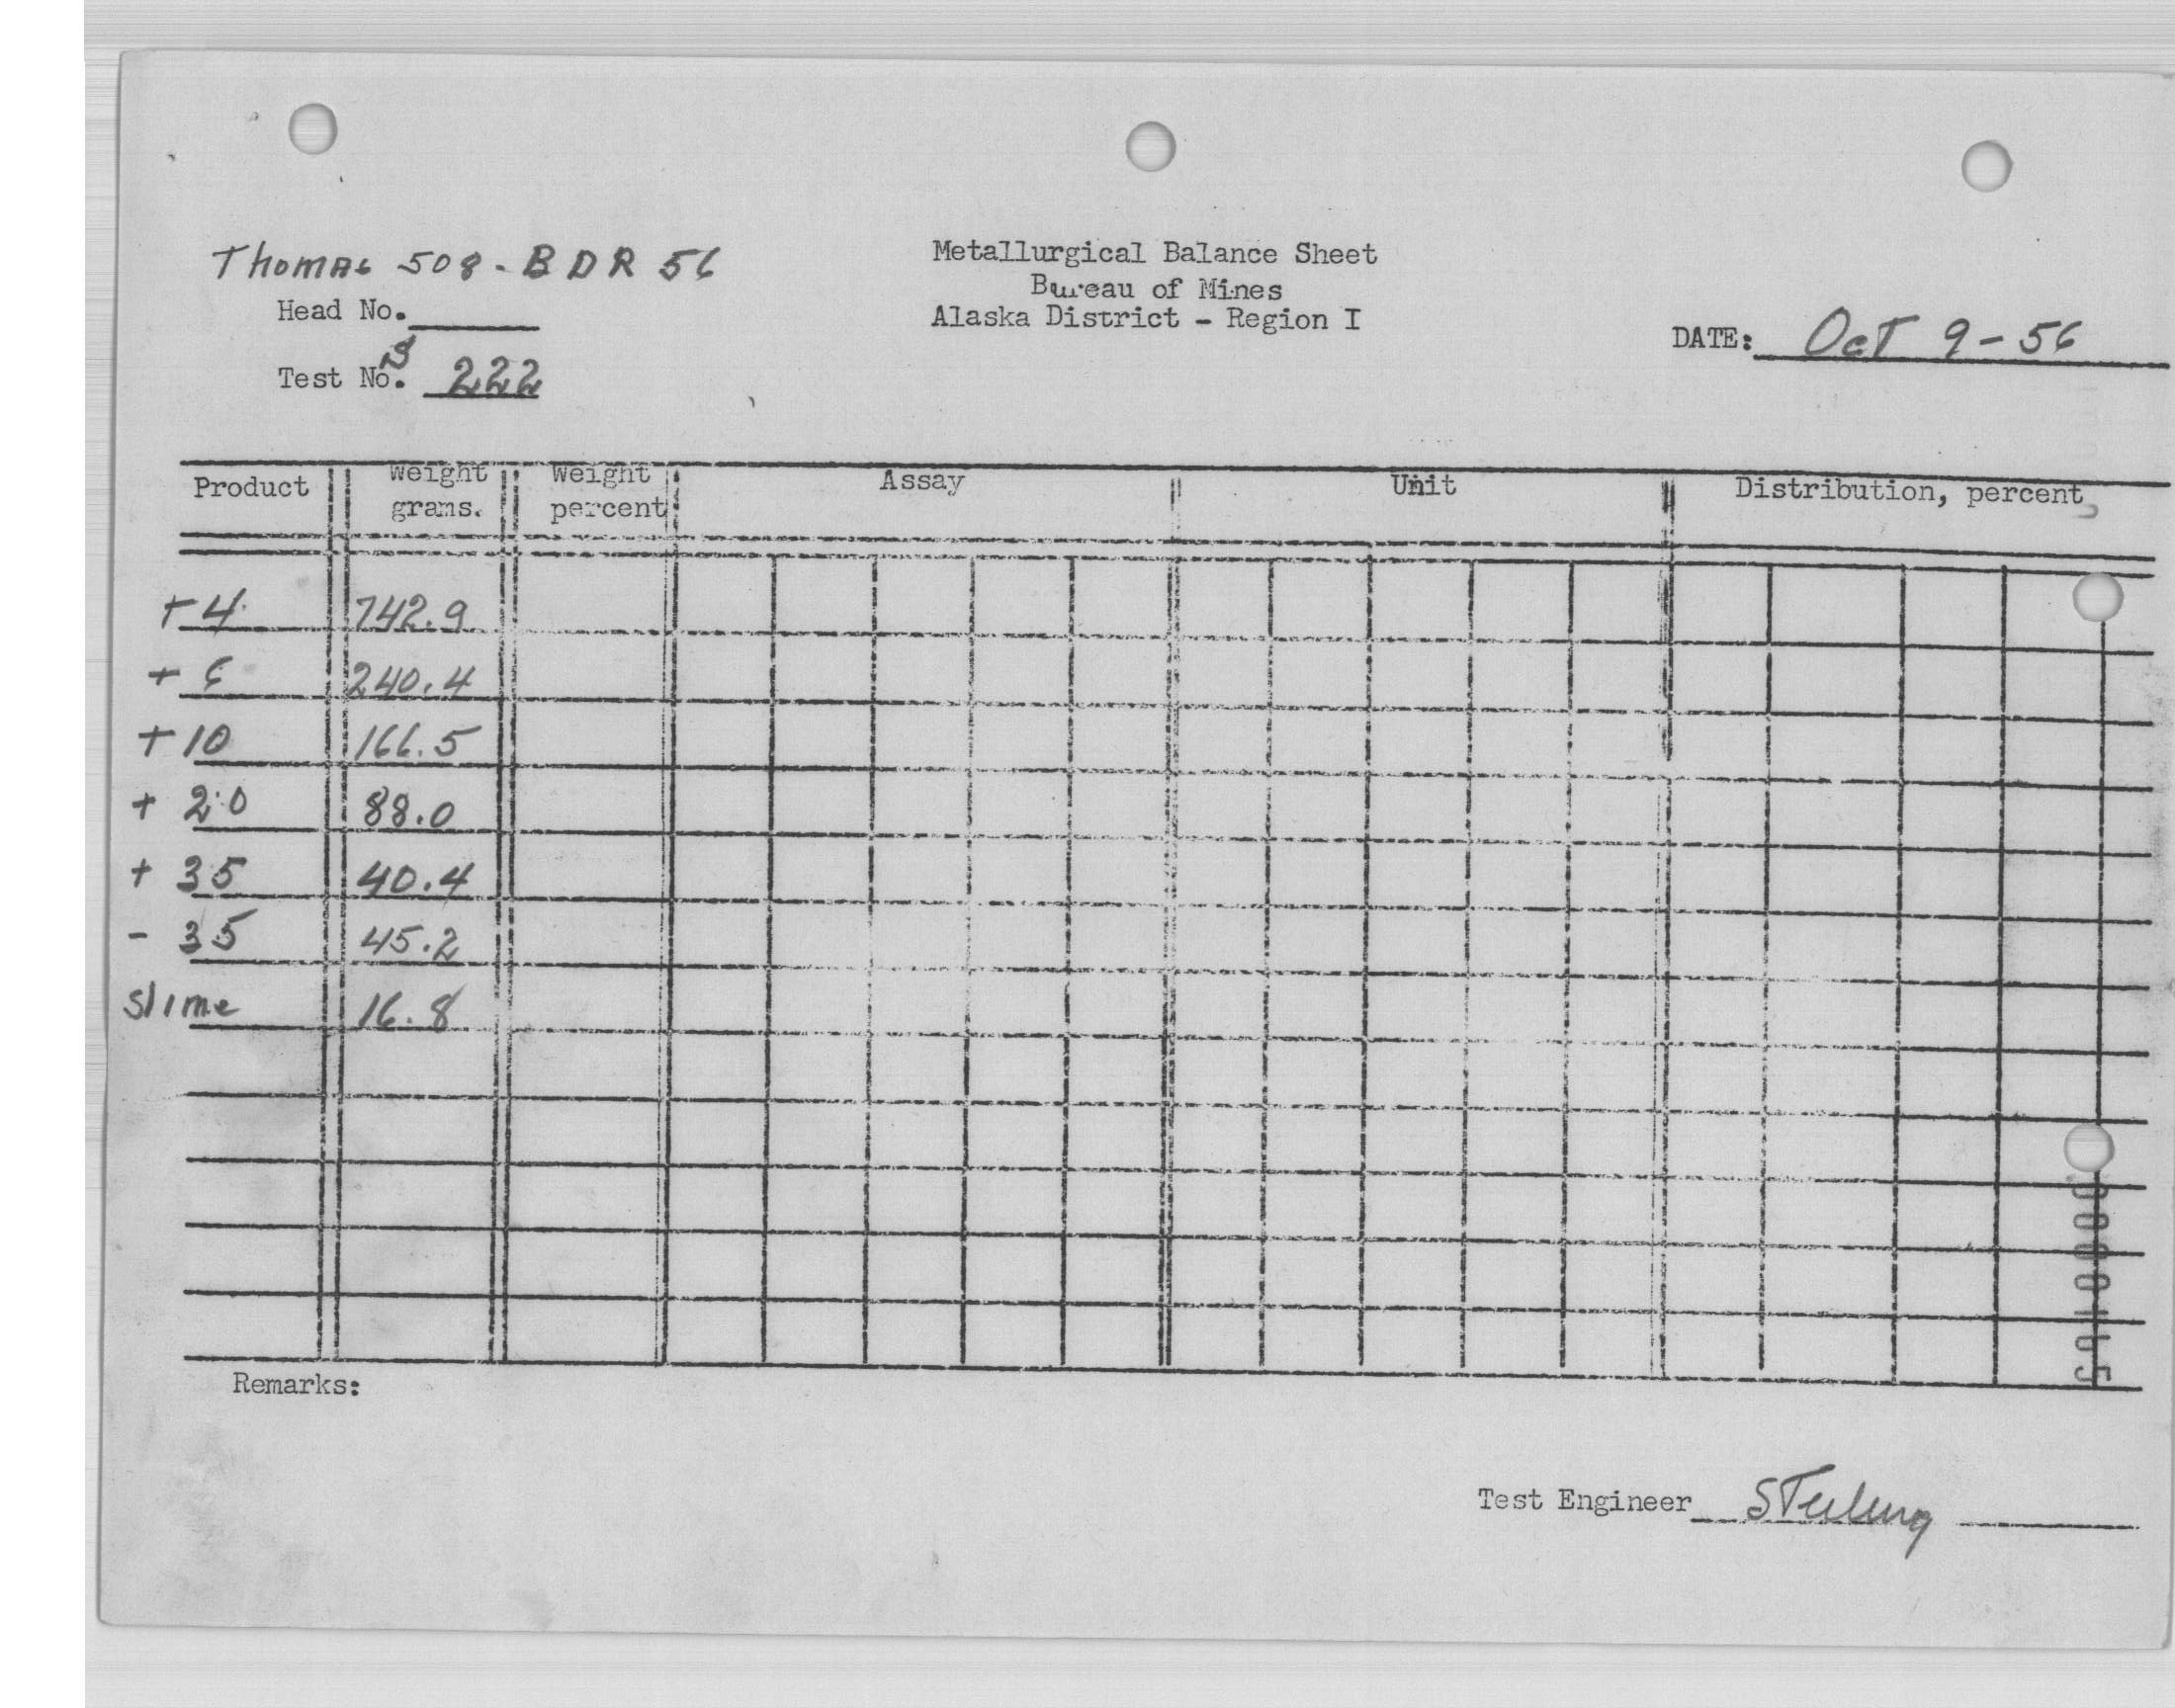 Thomas 508-BDR 56
Metallurgical Balance Sheet
Bureau of Mines
Alaska District - Region I
Head No.
DATE: Oct 9-56
Test No. S 222
Product Weight grams. Weight percent Assay Unit Distribution, percent
+4 742.9
+6 240.4
+10 166.5
+20 88.0
+35 40.4
-35 45.2
Slime 16.8
Remarks:
Test Engineer Sterling